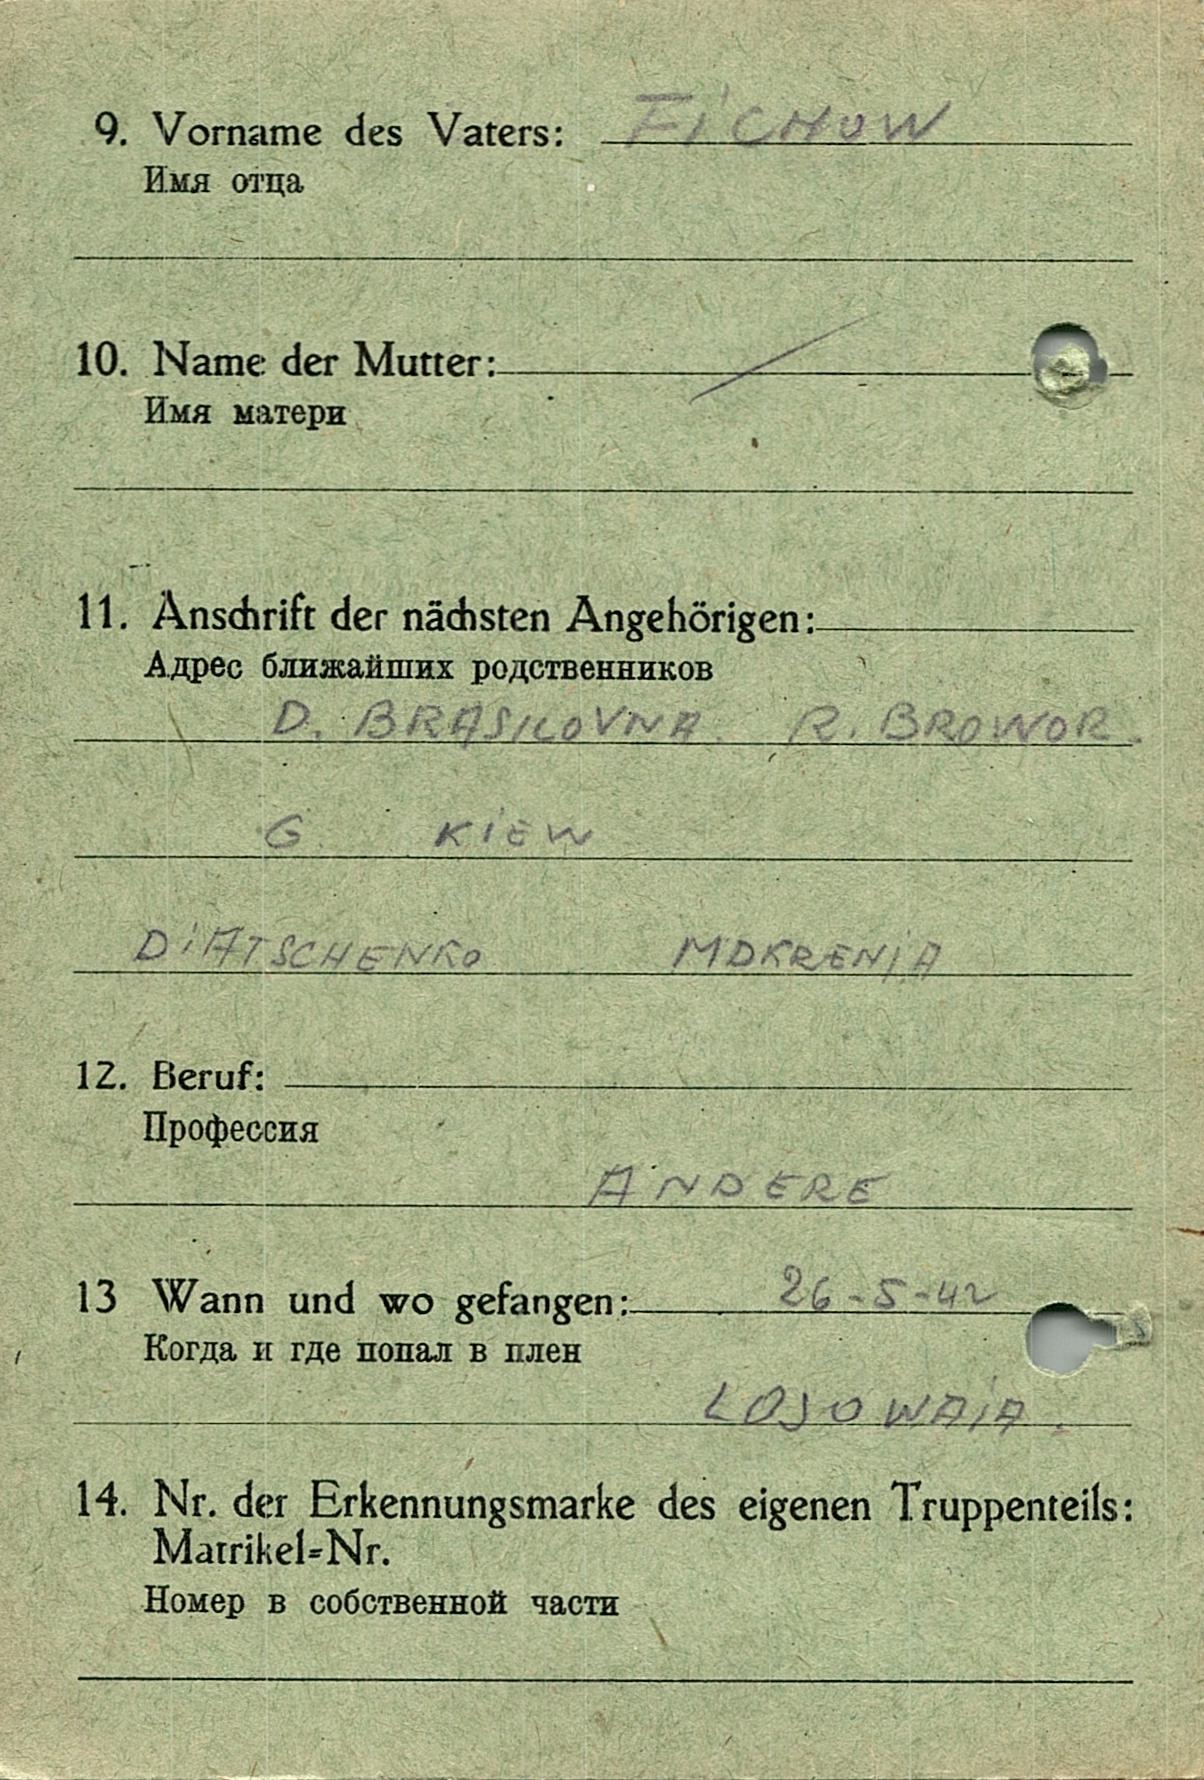 9. Vorname des Vaters: FiCHOW
Имя отца
10. Name der Mutter:
Имя матери
11. Anschrift der nächsten Angehörigen:
Адрес ближайших родственников
D. BRASILOVNA. R. BROWOR.
G. KiEW
DiATSCHENKO MOKRENiA
12. Beruf:
Профессия
ANDERE
13 Wann und wo gefangen: 26-5-42
Когда и где попал в плен
LOSOWAiA.
14. Nr. der Erkennungsmarke des eigenen Truppenteils:
Matrikel=Nr.
Номер в собственной части